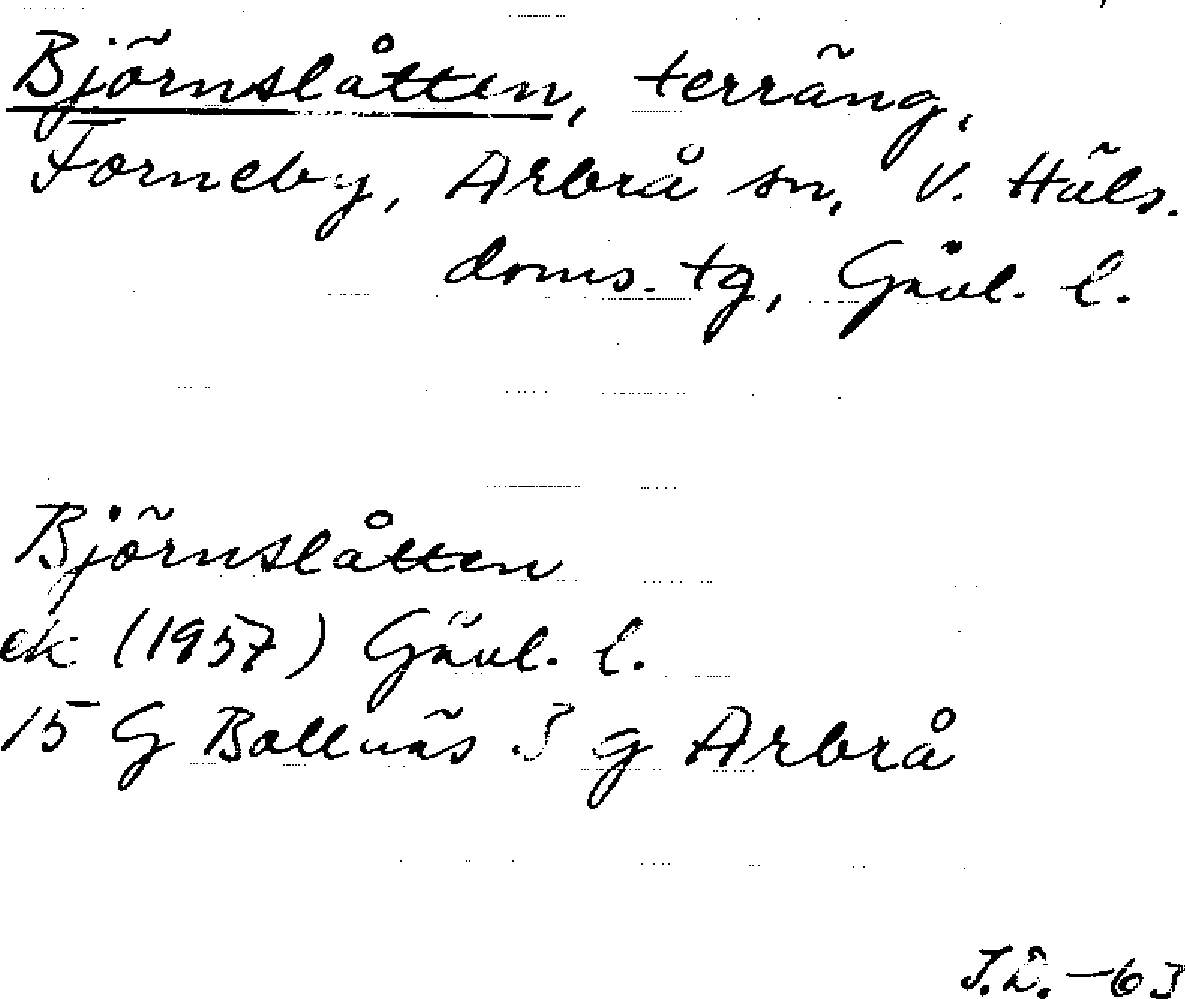 Björnslåtten, terräng,
Forneby, Arbrå sn, V. Häls.
doms. tg, Gävl. l.
Björnslåtten
ek (1957) Gävl. l.
15 G Bollnäs 3 g Arbrå
-63